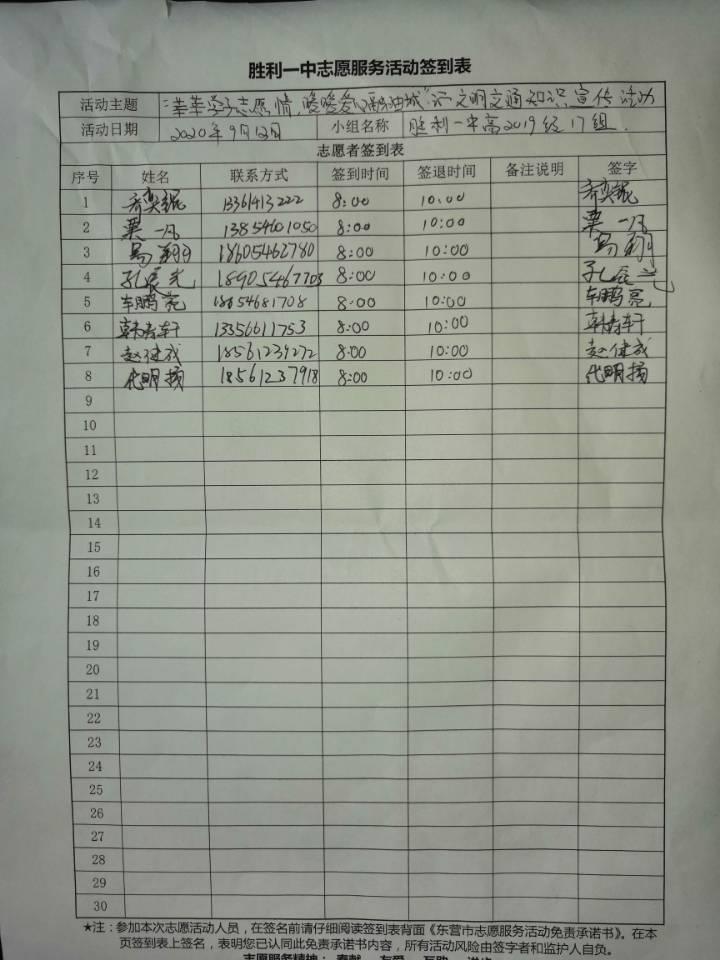 胜利一中志愿服务活动签到表
活动主题 "莘莘学子志愿情,暖暖爱心满油城"示文明交通知识宣传活动
活动日期 2020年9月12日 小组名称 胜利一中高2019级17组.
志愿者签到表
序号 姓名 联系方式 签到时间 签退时间 备注说明 签字
1 齐奕锟 13361413222 8:00 10:00 齐奕锟
2 栗一凡 13854601050 8:00 10:00 栗一凡
3 马翔 18605462780 8:00 10:00 马翔
4 孔辰光 18905467703 8:00 10:00 孔
5 车鹏亮 18654681708 8:00 10:00 车鹏亮
6 韩寿轩 13356611753 8:00 10:00 韩寿轩
7 赵健成 18561239272 8:00 10:00 赵健成
8 代明扬 18561237918 8:00 10:00 代明扬
9
10
11
12
13
14
15
16
17
18
19
20
21
22
23
24
25
26
27
28
29
30
★注:参加本次志愿活动人员,在签名前请仔细阅读签到表背面《东营市志愿服务活动免责承诺书》。在本
页签到表上签名,表明您已认同此免责承诺书内容,所有活动风险由签字者和监护人自负。
志愿服务精神:奉献 友爱 互助 进步